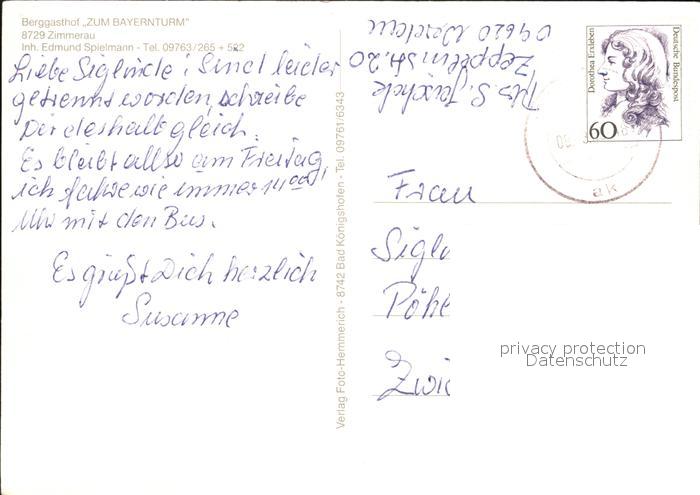 Berggasthof „ZUM BAYERNTURM"
8729 Zimmerau
Inh. Edmund Spielmann - Tel. 09763/265 + 522
Liebe Siglinde! Sind leider
getrennt worden, schreibe
Dir deshalb gleich.
Es bleibt allso am Freitag,
ich fahre wie immer 14 00
Uhr mit den Bus.
Es grüßt Dich herzlich
Susanne
Verlag Foto-Hemmerich - 8742 Bad Königshofen - Tel. 09761/6343
Abs S.
Zeppelinstr. 20
09620
Dorothea Erxleben
Deutsche Bundespost
60
ak
Frau
Sigl
Pöhl
Zwi
privacy protection
Datenschutz